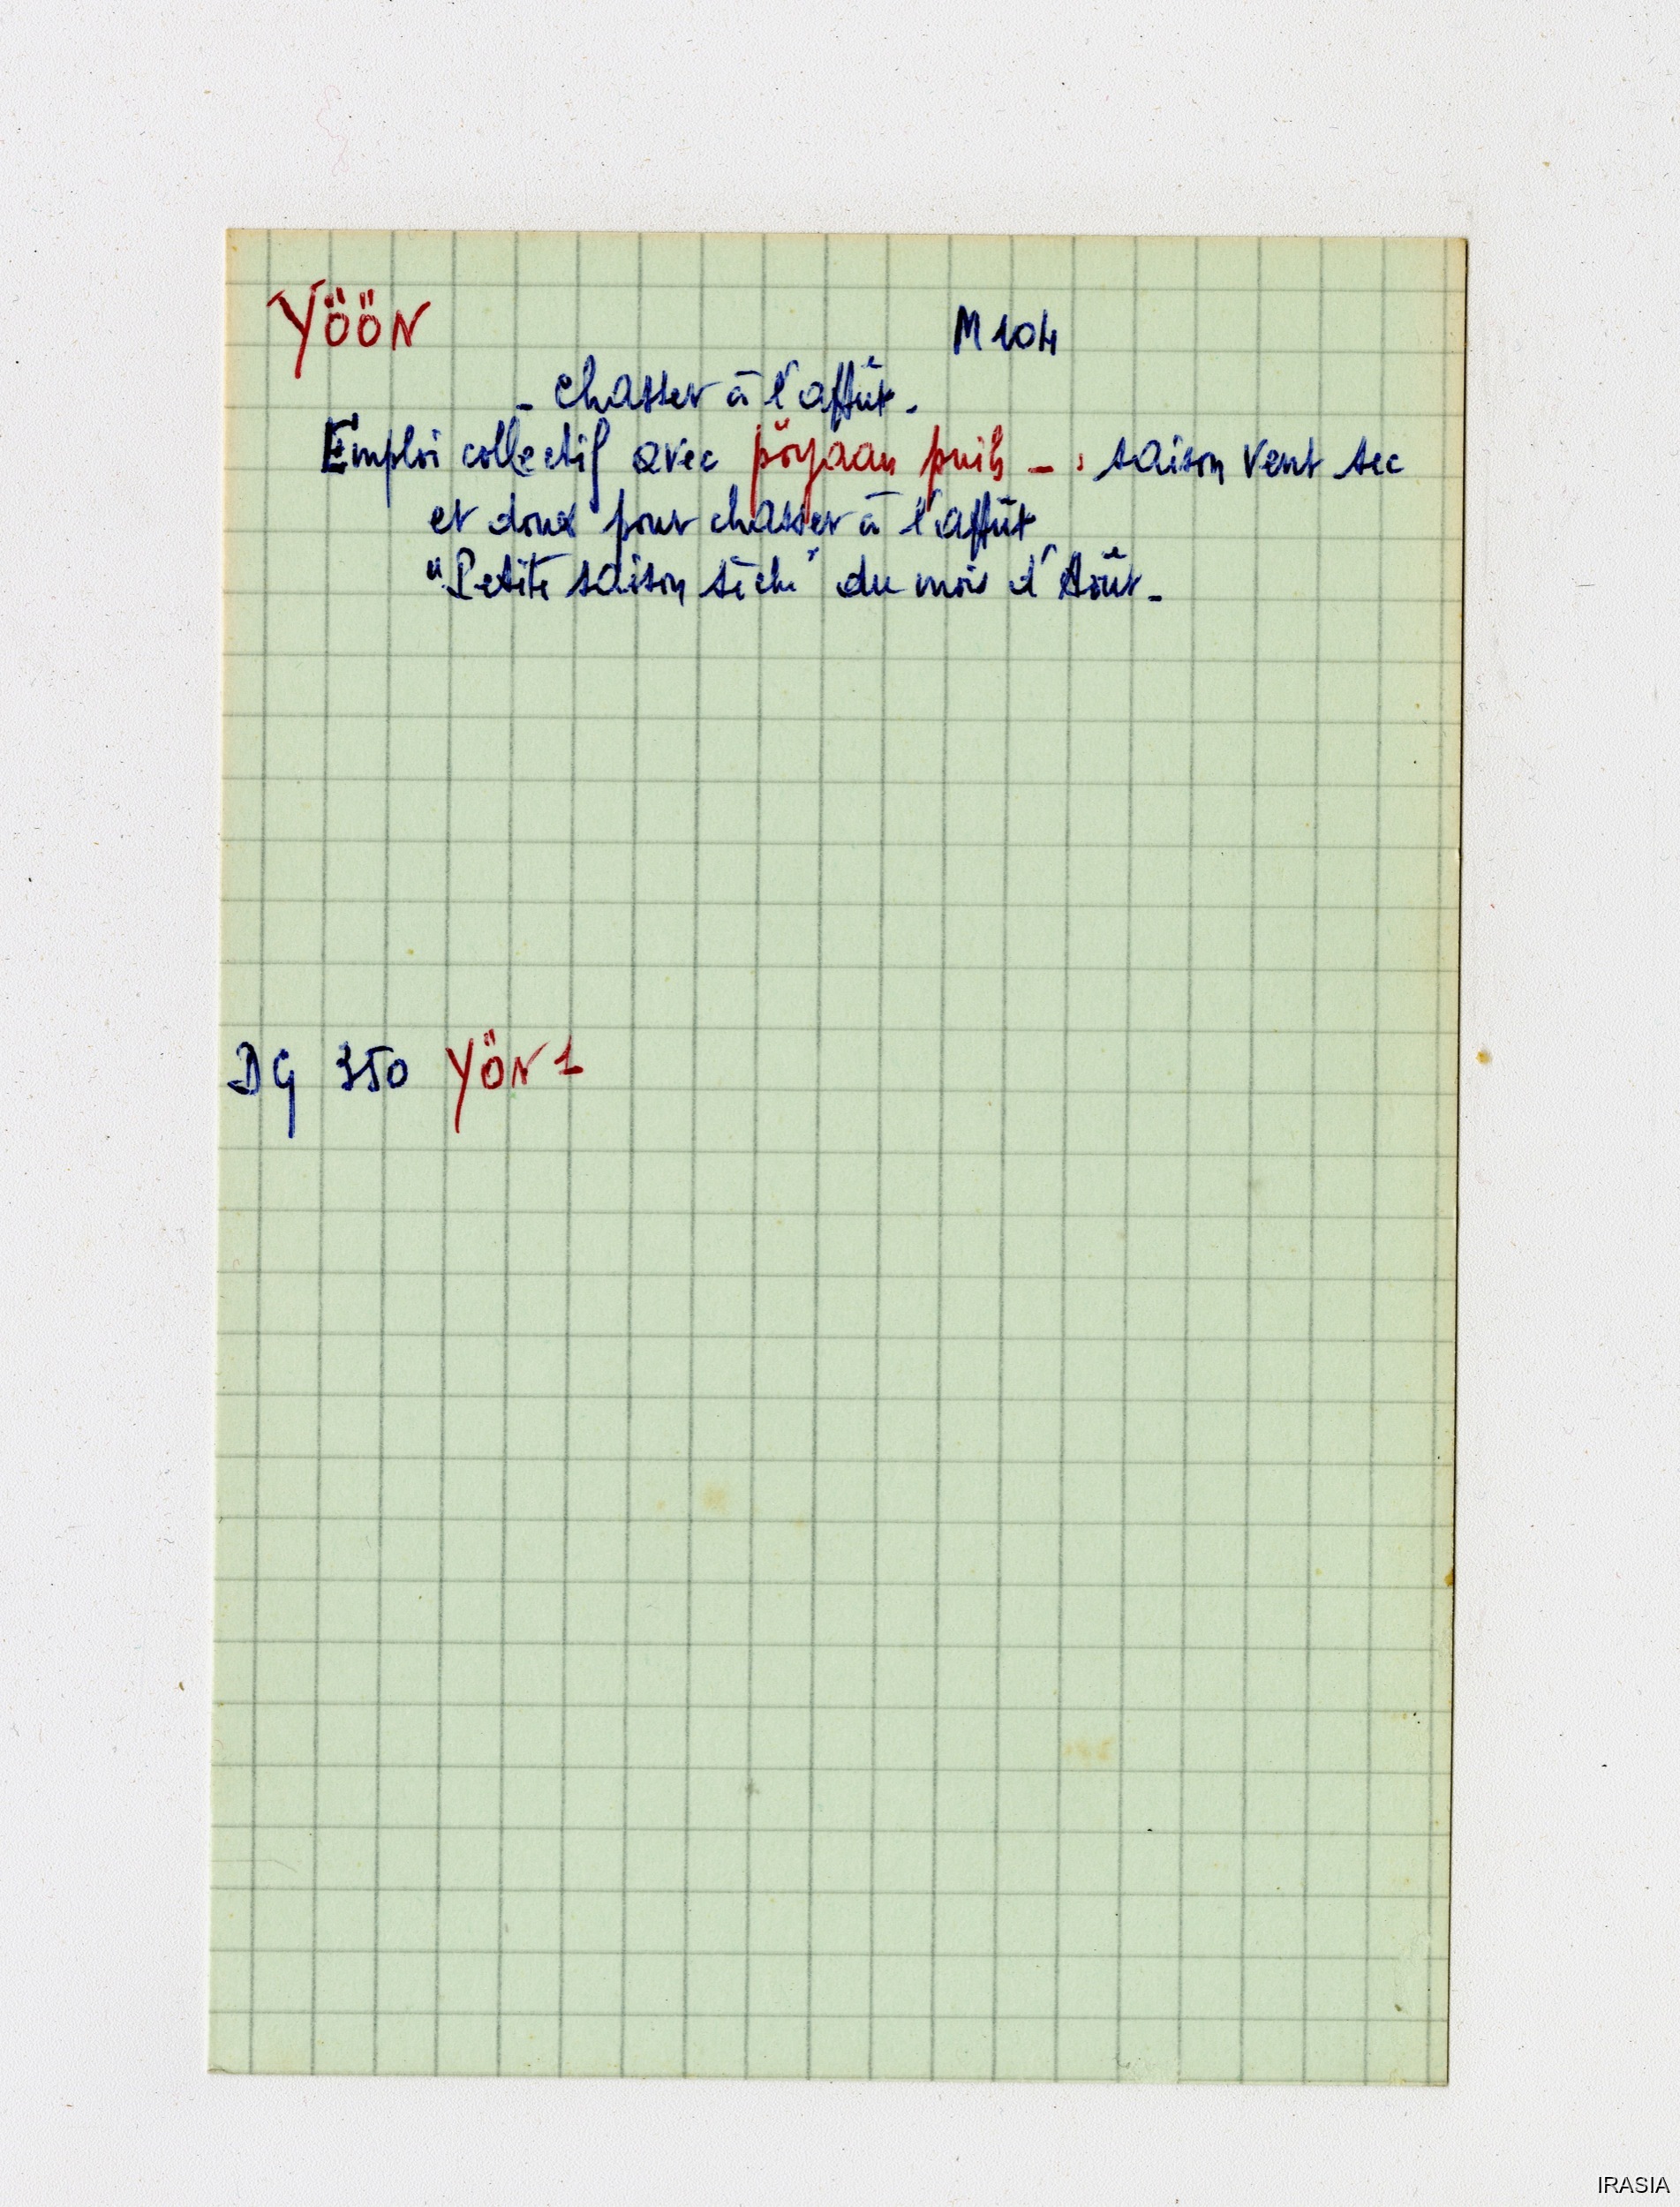 YÖÖN M 104
- Chasser à l'affût -
Emploi collectif avec pöyaan puih - : saison vent sec
et doux pour chasser à l'affût
"Petite saison sèche" du mois d'Août -
DG 350 YÖN 1
IRASIA